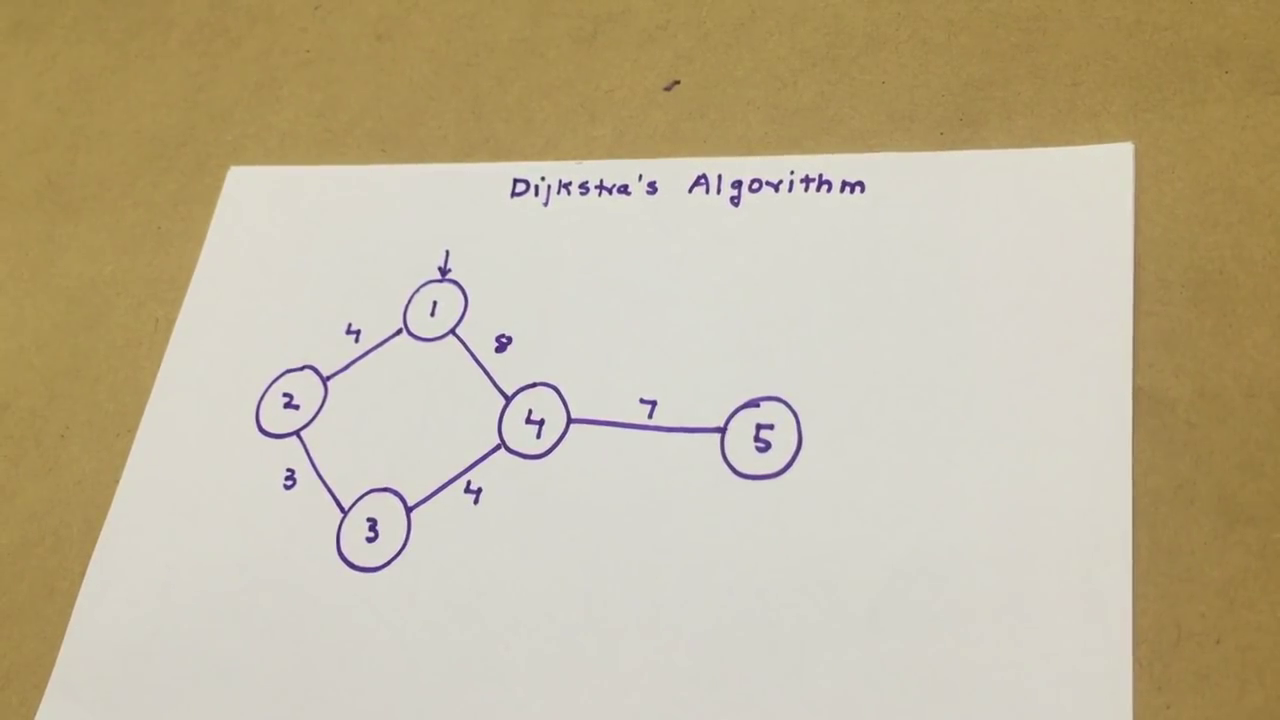 Dijkstra's Algorithm
1
4 8
2
4
7
5
3
4
3